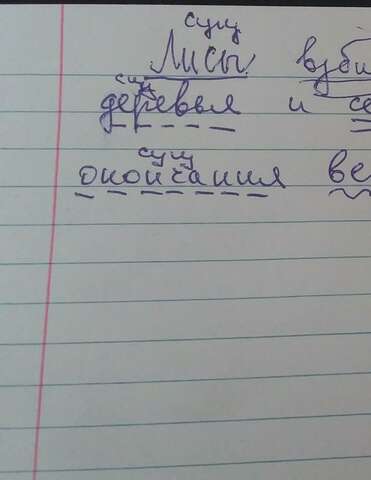 сущ
Лисы взби
сущ
деревья и се
сущ
окончания ве